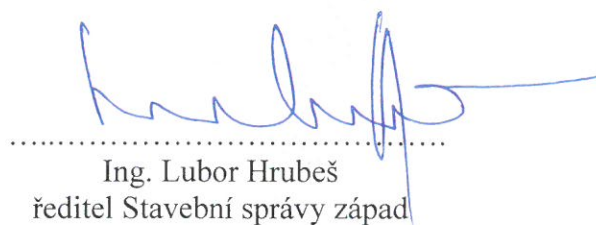 ................................................
Ing. Lubor Hrubeš
ředitel Stavební správy západ